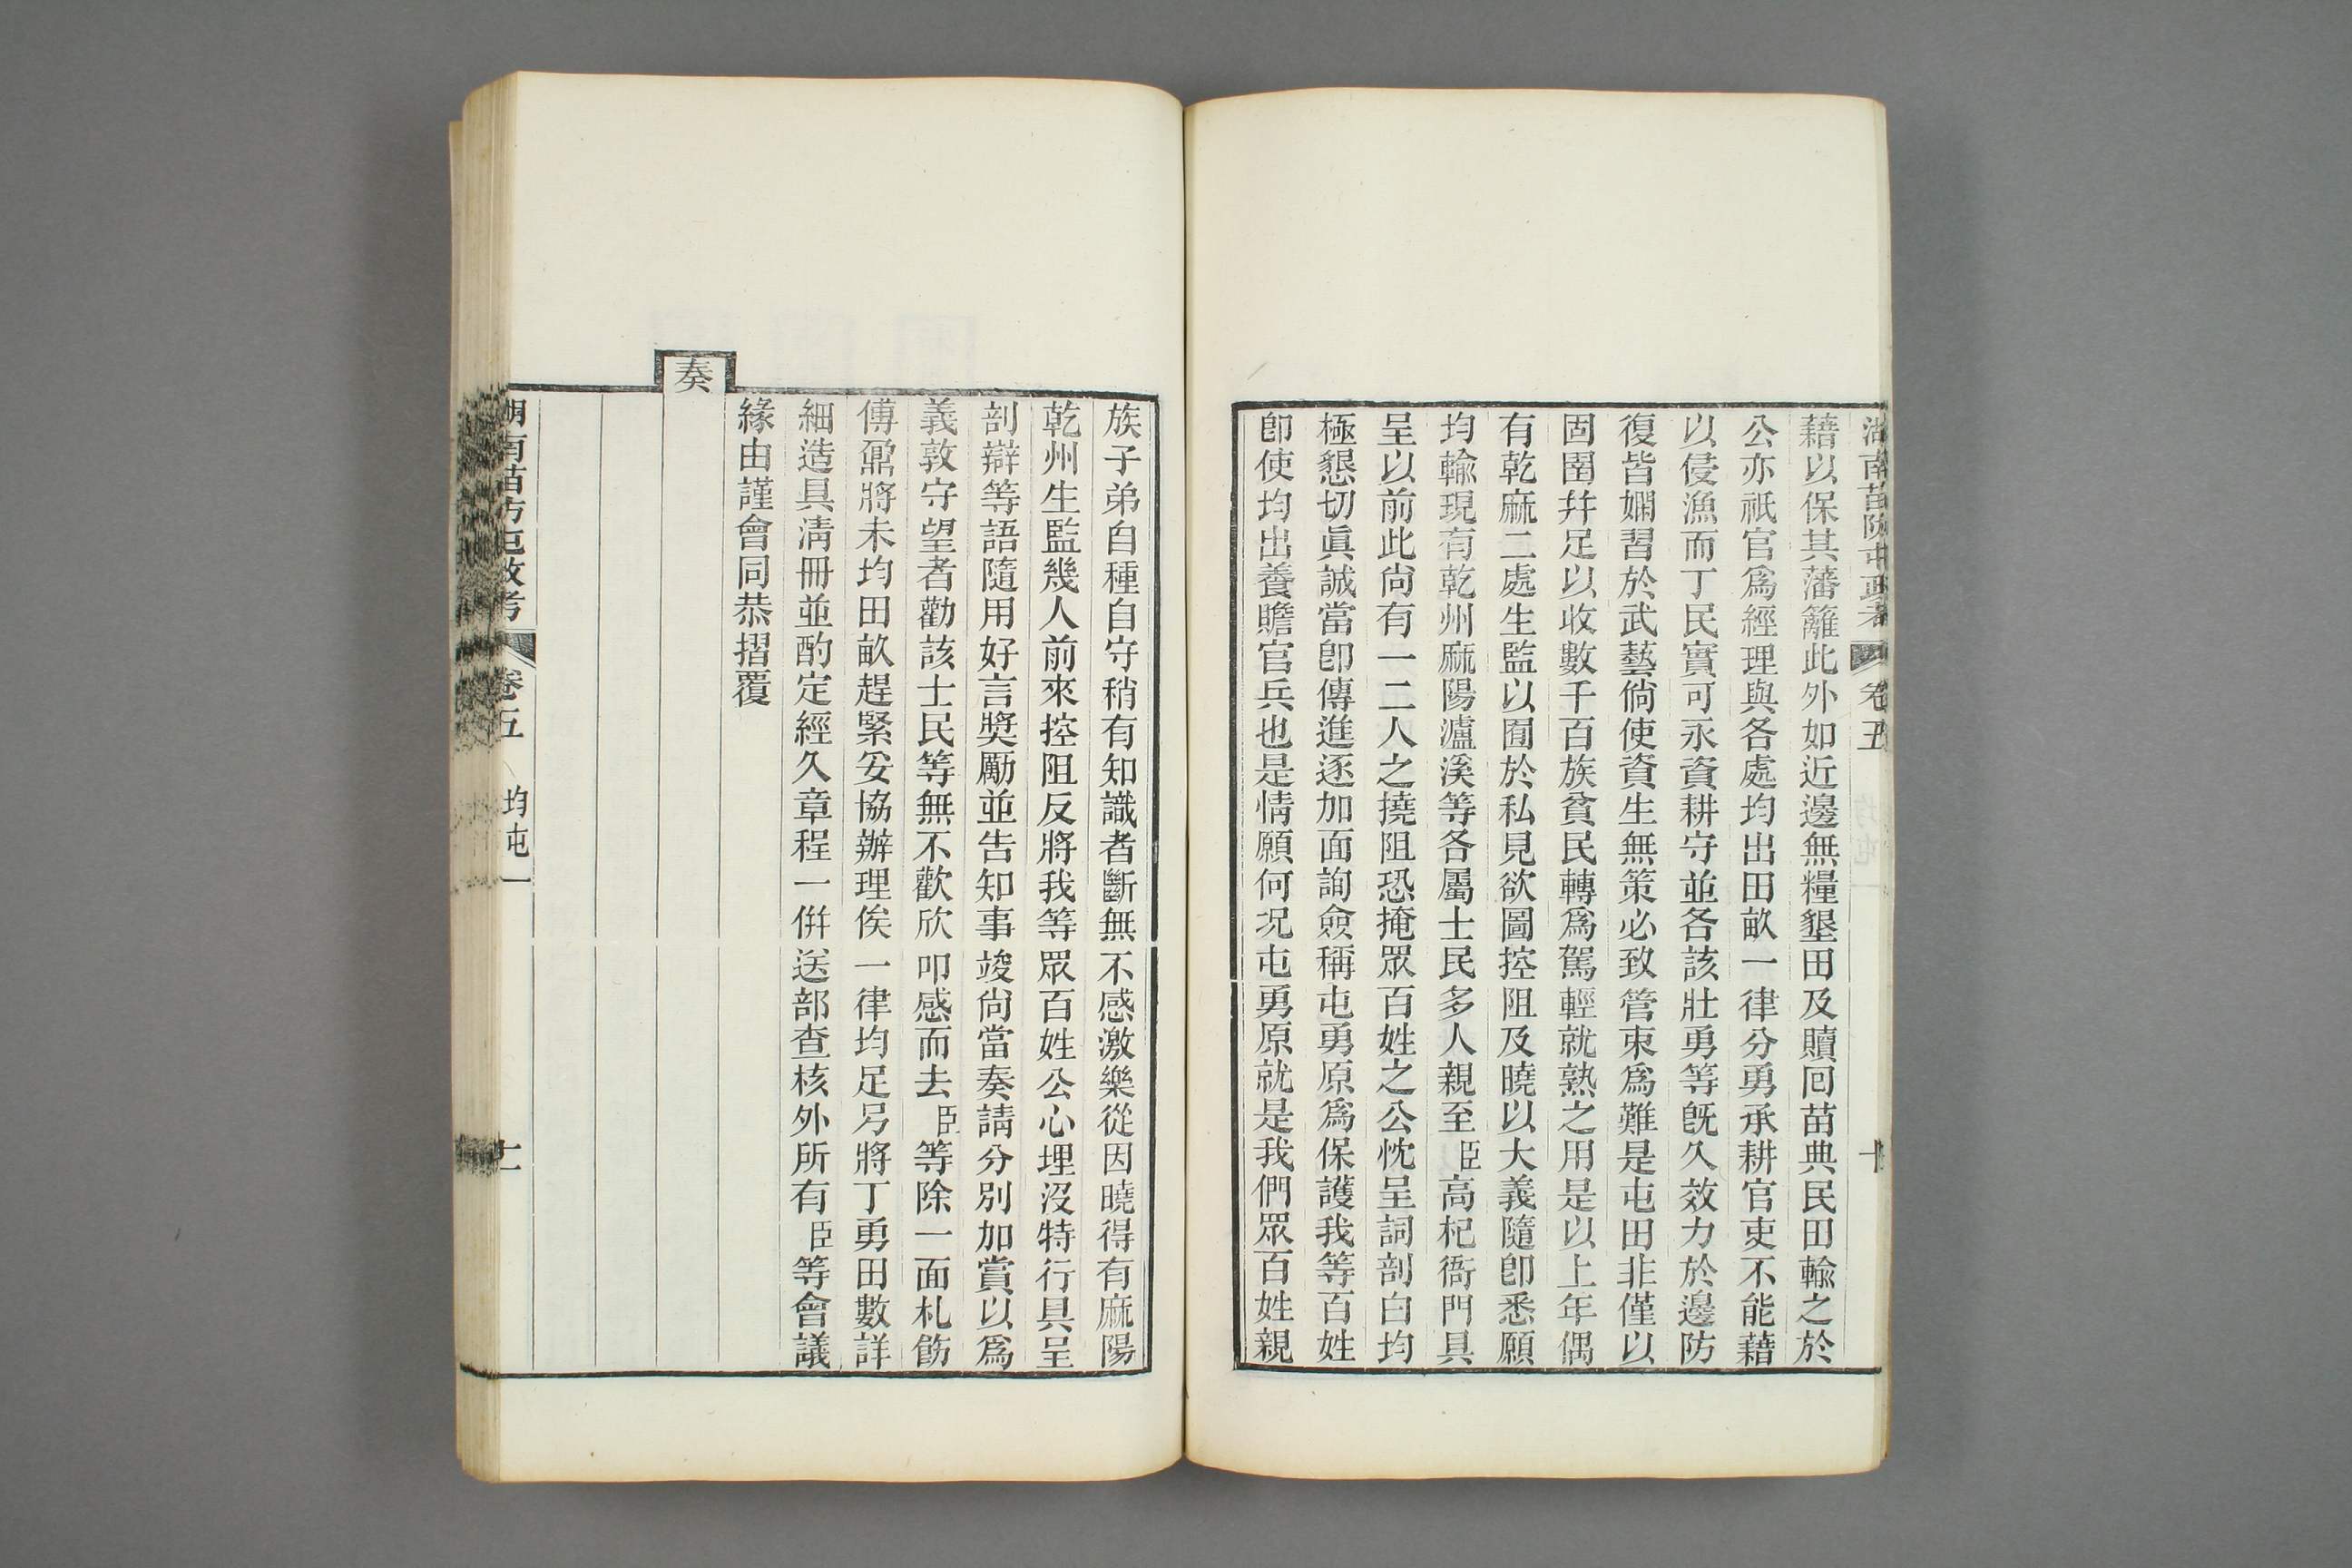 湖南苗防屯政考 卷五 均屯一 十
藉以保其藩籬此外如近邊無糧墾田及贖回苗典民田輸之於
公亦祇官爲經理與各處均出田畝一律分勇承耕官吏不能藉
以侵漁而丁民實可永資耕守並各該壯勇等旣久效力於邊防
復皆嫻習於武藝倘使資生無策必致管束爲難是屯田非僅以
固圉幷足以收數千百族貧民轉爲駕輕就熟之用是以上年偶
有乾麻二處生監以囿於私見欲圖控阻及曉以大義隨卽悉願
均輸現有乾州麻陽瀘溪等各屬士民多人親至臣高杞衙門具
呈以前此尙有一二人之撓阻恐掩眾百姓之公忱呈詞剖白均
極懇切眞誠當卽傳進逐加面詢僉稱屯勇原爲保護我等百姓
卽使均出養贍官兵也是情願何況屯勇原就是我們眾百姓親
族子弟自種自守稍有知識者斷無不感激樂從因曉得有麻陽
乾州生監幾人前來控阻反將我等眾百姓公心埋沒特行具呈
剖辯等語隨用好言獎勵並告知事竣尙當奏請分別加賞以爲
義敦守望者勸該士民等無不歡欣叩感而去臣等除一面札飭
傅鼐將未均田畝趕緊妥協辦理俟一律均足另將丁勇田數詳
細造具清冊並酌定經久章程一併送部查核外所有臣等會議
緣由謹會同恭摺覆
奏
湖南苗防屯政考 卷五 均屯一 十一